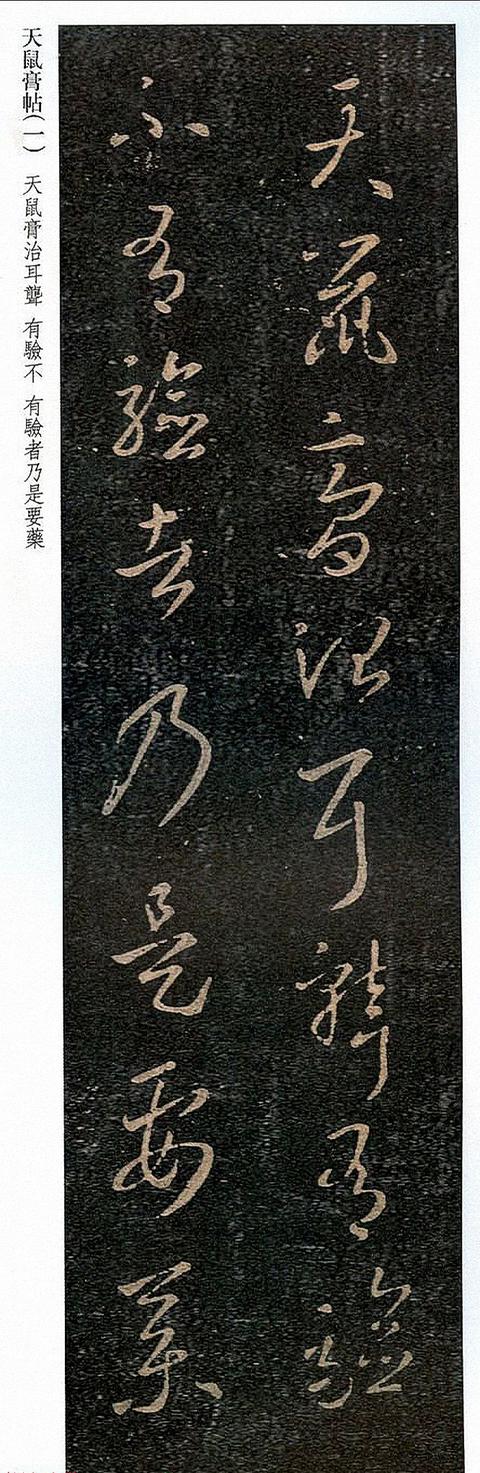 天鼠膏治耳聾有驗
不有驗者乃是要藥
天鼠膏帖(一) 天鼠膏治耳聾 有驗不 有驗者乃是要藥